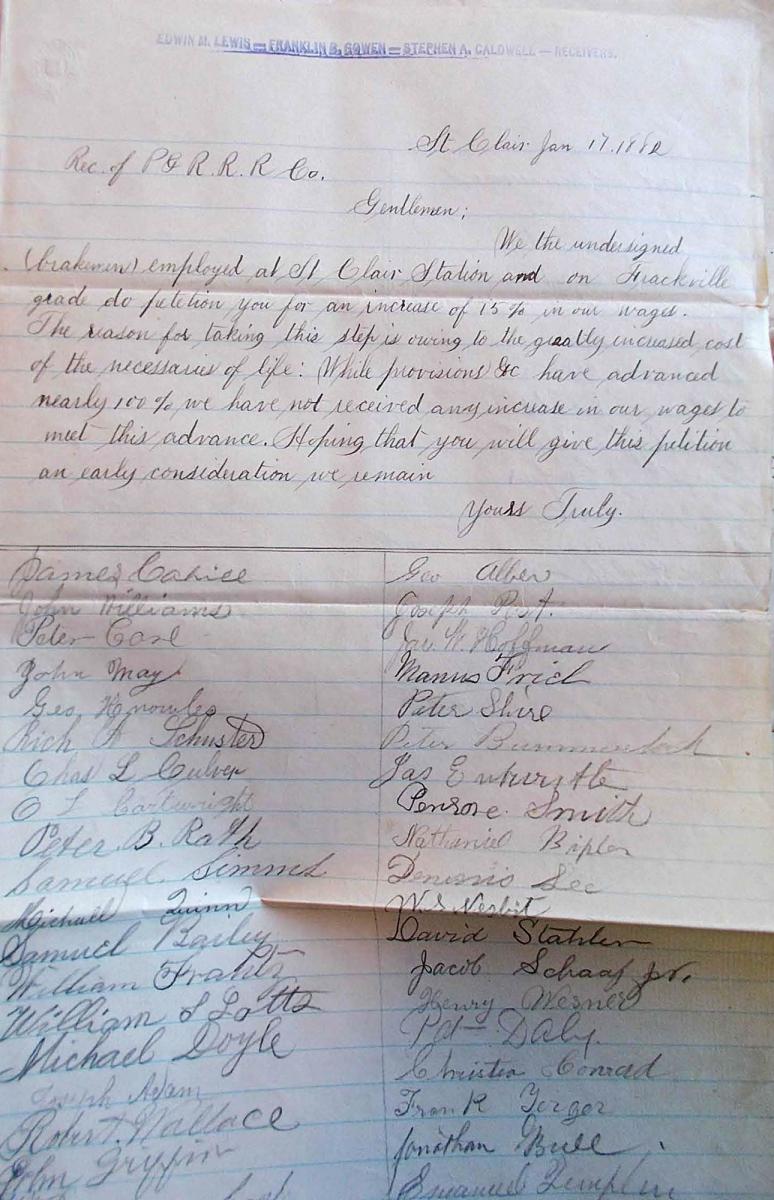 EDWIN M. LEWIS — FRANKLIN B. GOWEN — STEPHEN A. CALDWELL — RECEIVERS.
St Clair Jan 17. 1882
Rec. of P & R. R. R Co.
Gentlemen;
We the undersigned
(brakemen) employed at St Clair Station and on Frackville
grade do petition you for an increase of 15 % in our wages.
The reason for taking this step is owing to the greatly increased cost
of the necessaries of life: While provisions &c have advanced
nearly 100 % we have not received any increase in our wages to
meet this advance. Hoping that you will give this petition
an early consideration we remain
Yours Truly.
James Cahill
John Williams
Peter Earl
John May
Geo Knowles
Rich Schuster
Chas L Culver
O L Cartwright
Peter. B. Rath
Samuel Simms
Michael Quinn
Samuel Bailey
William Frantz
William S Lotts
Michael Doyle
Joseph Adam
Robert Wallace
John Gryffin
Geo Alber
Joseph Rist.
Jac. W. Hoffman
Manus Frich
Peter Shire
Peter
Jas
Penrose Smith
Nathaniel Bixler
Dennis Lee
W. S. Nesbit
David Stahler
Jacob Schaaf Jr.
Henry Wesner
Pat Daly.
Christin Conrad
Frank Yerger
Jonathan Bull
Emanuel